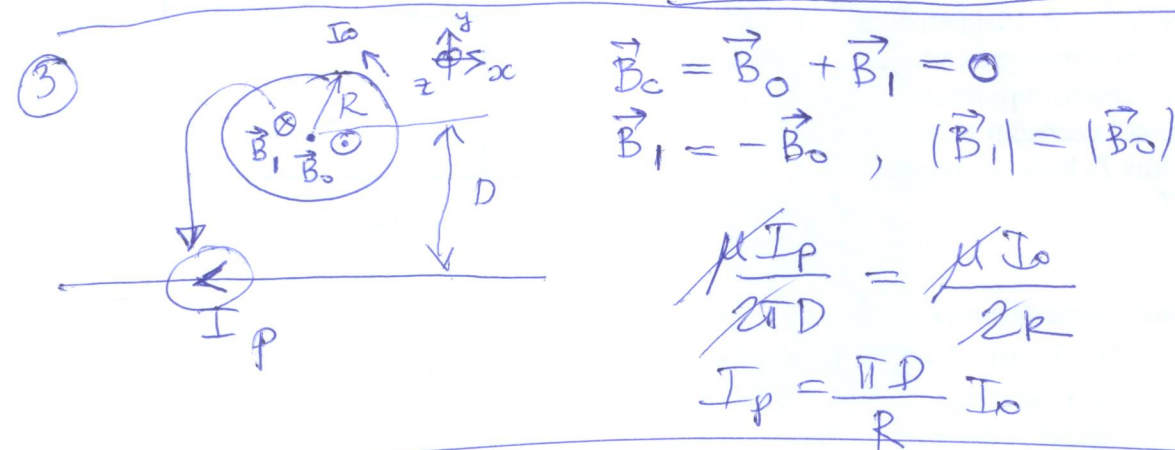 ③
I₀
y
x
z
R
B⃗₁ ⊗
B⃗₀ ⊙
D
I_p
B⃗_c = B⃗₀ + B⃗₁ = 0
B⃗₁ = -B⃗₀ , |B⃗₁| = |B⃗₀|
μI_p / 2πD = μI₀ / 2R
I_p = πD / R I₀